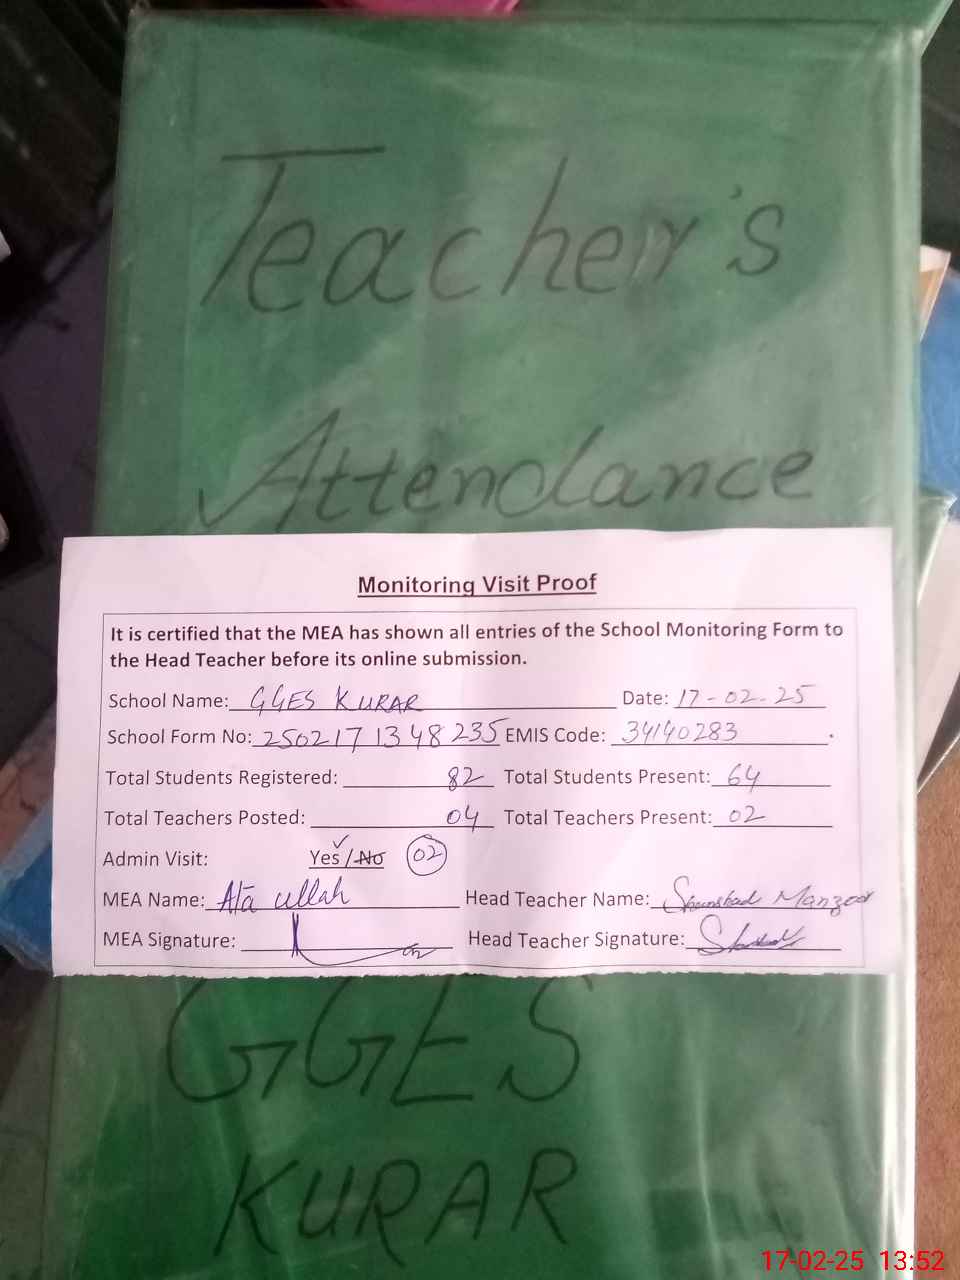 Teacher's
Attendance
Monitoring Visit Proof
It is certified that the MEA has shown all entries of the School Monitoring Form to
the Head Teacher before its online submission.
School Name: GGES KURAR Date: 17-02-25
School Form No: 250217 1348 235 EMIS Code: 34140283
Total Students Registered: 82 Total Students Present: 64
Total Teachers Posted: 04 Total Teachers Present: 02
Admin Visit: Yes / No 02
MEA Name: Ata ullah Head Teacher Name: Manzoor
MEA Signature: Head Teacher Signature:
GGES
KURAR
17-02-25 13:52